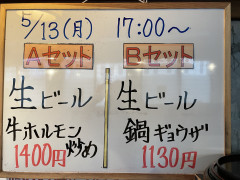 5/13(月) 17:00〜
Aセット
生ビール
牛ホルモン
炒め
1400円
Bセット
生ビール
鍋ギョウザ
1130円